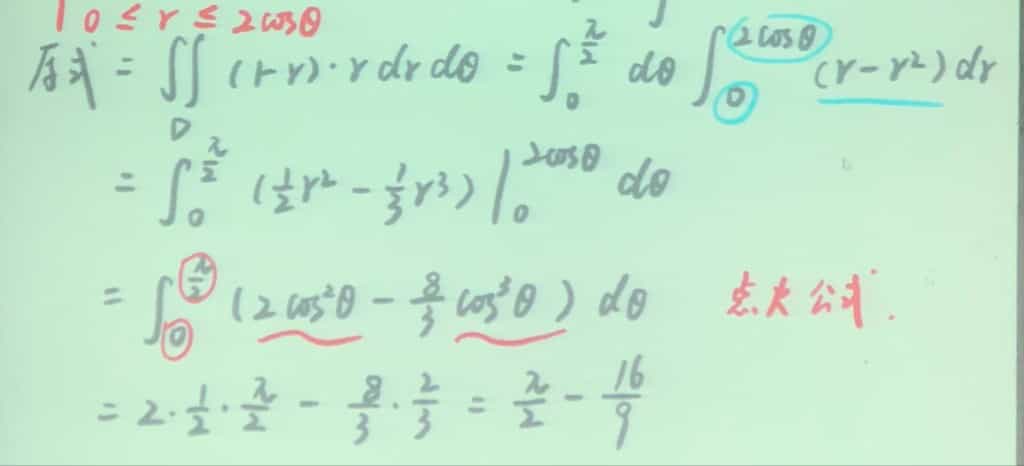 0 ≤ r ≤ 2cosθ
原式 = ∬_D (1-r)·r dr dθ = ∫_0^{π/2} dθ ∫_0^{2cosθ} (r-r²) dr
= ∫_0^{π/2} (1/2 r² - 1/3 r³) |_0^{2cosθ} dθ
= ∫_0^{π/2} (2cos²θ - 8/3 cos³θ) dθ 点火公式.
= 2·1/2·π/2 - 8/3·2/3 = π/2 - 16/9